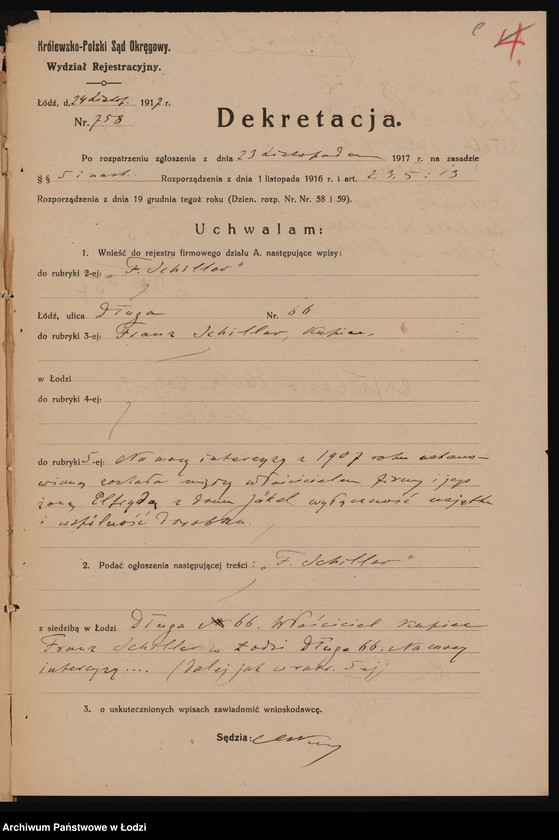 4
Królewsko-Polski Sąd Okręgowy.
Wydział Rejestracyjny.
Łódź, d. 24 Listop. 1917 r.
Nr. 758
Dekretacja.
Po rozpatrzeniu zgłoszenia z dnia 23 Listopada 1917 r. na zasadzie
§ § 5 i nast. Rozporządzenia z dnia 1 listopada 1916 r. i art. 2, 3, 5 i 13
Rozporządzenia z dnia 19 grudnia tegoż roku (Dzien. rozp. Nr. Nr. 58 i 59).
Uchwalam:
1. Wnieść do rejestru firmowego działu A. następujące wpisy:
do rubryki 2-ej: „F. Schiller"
Łódź, ulica Długa Nr. 66
do rubryki 3-ej: Franz Schiller, kupiec,
w Łodzi
do rubryki 4-ej:
do rubryki 5-ej: Na mocy intercyzy z 1907 roku ustano-
wioną została między właścicielem firmy i jego
żoną Elfrydą z domu Jäkel wyłączność majątku
i wspólność dorobku.
2. Podać ogłoszenia następującej treści: „F. Schiller"
z siedzibą w Łodzi Długa 66. Właściciel kupiec
Franz Schiller w Łodzi Długa 66. Na mocy
intercyzy.... (dalej jak w rubr. 5 ej)
3. o uskutecznionych wpisach zawiadomić wnioskodawcę.
Sędzia:
Archiwum Państwowe w Łodzi